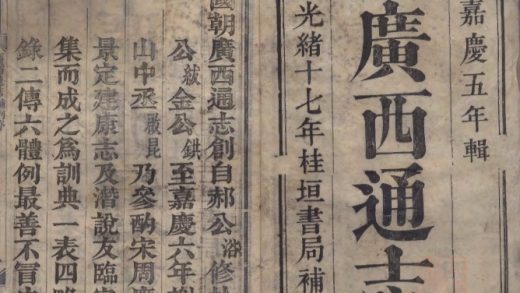 嘉慶五年輯
廣西通志
光緒十七年桂垣書局補
國朝廣西通志創自郝公浴修
公紱金公鉷至嘉慶六年謝
山中丞啟昆乃參酌宋周應
景定建康志及潛說友臨安
集而成之爲訓典一表四略
錄二傳六體例最善不冒